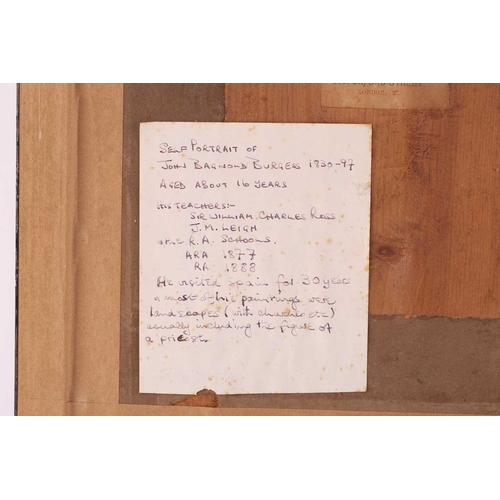 LONDON, W.
SELF PORTRAIT OF
JOHN BAGNOLD BURGESS 1830-97
AGED ABOUT 16 YEARS
HIS TEACHERS:-
SIR WILLIAM CHARLES ROSS
J.M. LEIGH
R.A. SCHOOLS.
ARA 1877
RA 1888
He visited Spain for 30 years
& most of his paintings were
landscapes (with churches etc)
usually including the figure of
a priest.